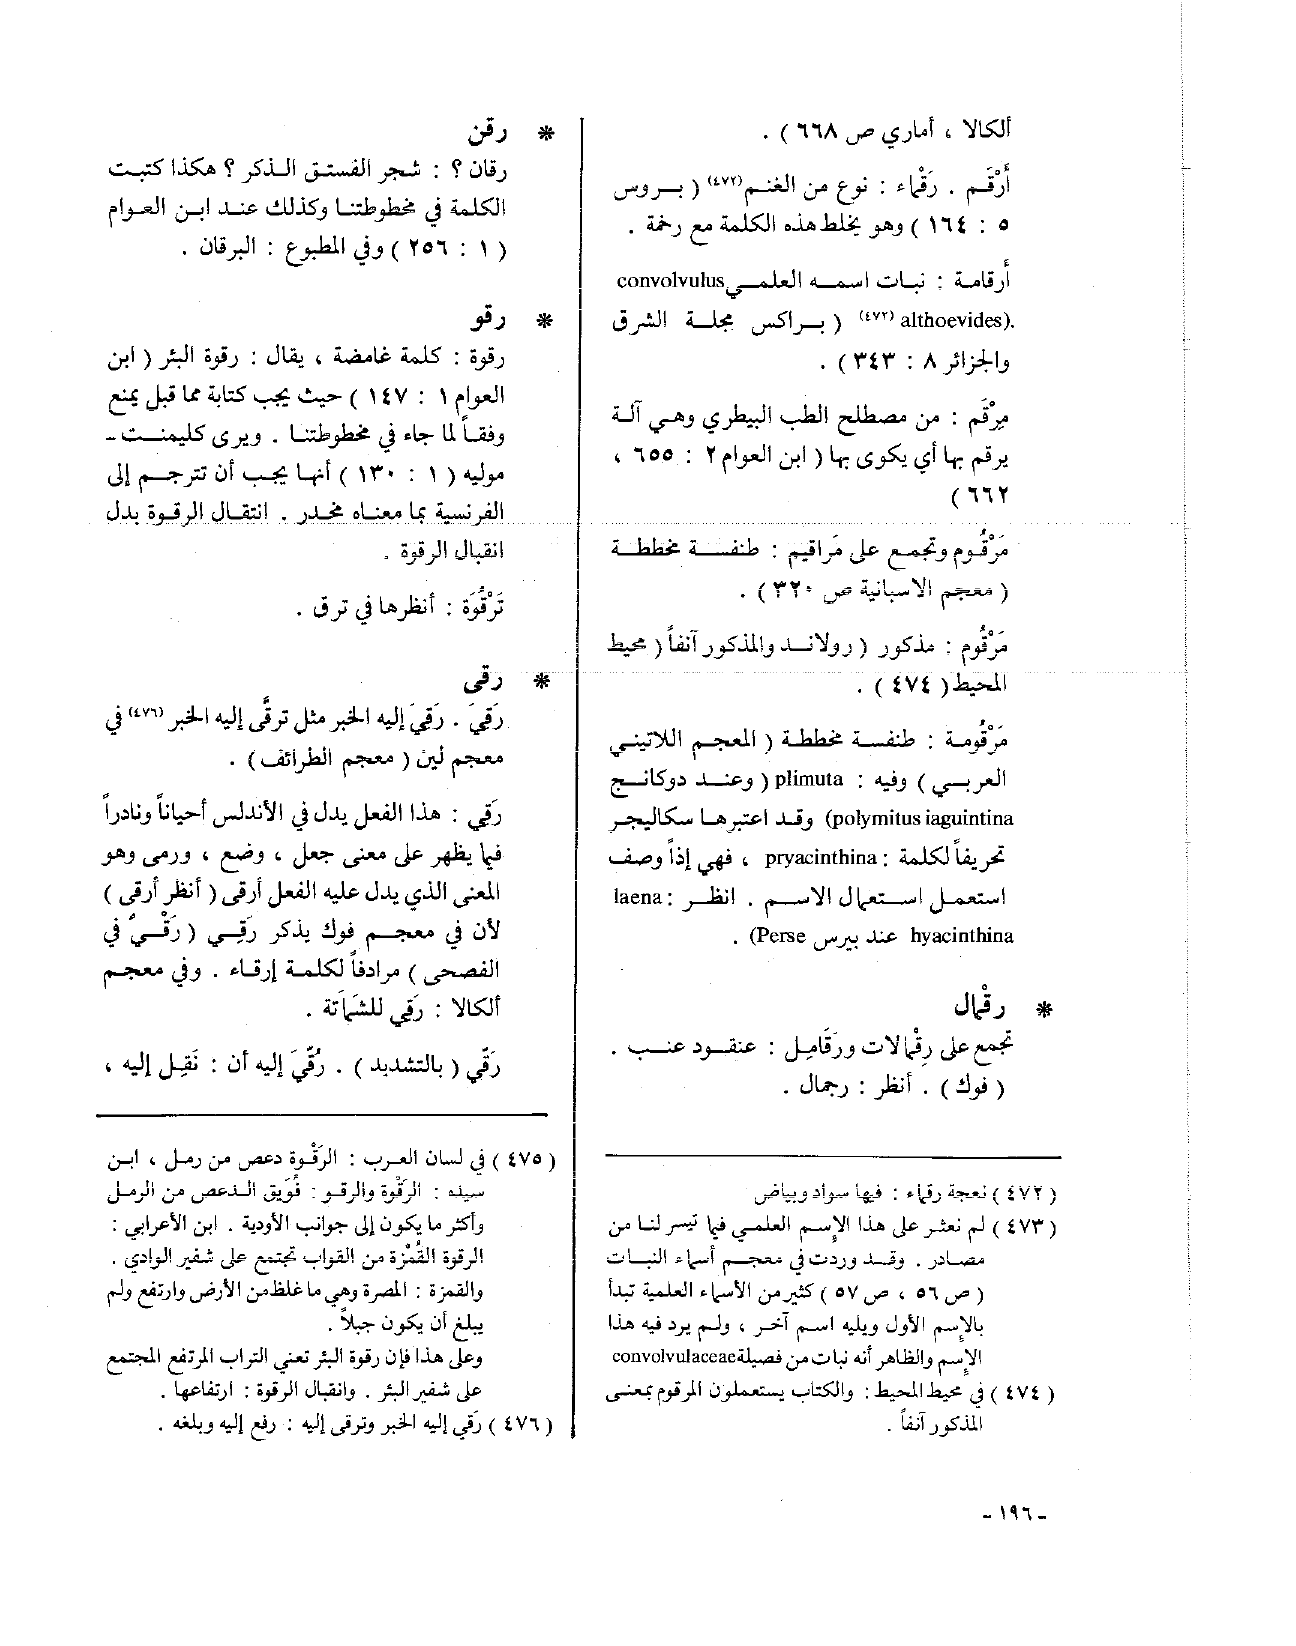 ألكالا ، أماري ص ٦٦٨ ) .
أَرْقَم . رَقْماء : نوع من الغنم(٤٧٢) ( بروس
٥ : ١٦٤ ) وهو يخلط هذه الكلمة مع رخمة .
أُرقامة : نبات اسمه العلمي convolvulus
althoevides).(٤٧٣) ( براكس مجلة الشرق
والجزائر ٨ : ٣٤٣ ) .
مِرْقَم : من مصطلح الطب البيطري وهي آلة
يرقم بها أي يكوى بها ( ابن العوام ٢ : ٦٥٥ ،
٦٦٢ )
مَرْقُوم وتجمع على مَراقيم : طنفسة مخططة
( معجم الاسبانية ص ٣٢٠ ) .
مَرْقُوم : مذكور ( رولاند والمذكور آنفاً ( محيط
المحيط ( ٤٧٤ ) .
مَرْقُومة : طنفسة مخططة ( المعجم اللاتيني
العربي ) وفيه : plimuta ( وعند دوكانج
polymitus iaguintina) وقد اعتبرها سكاليجر
تحريفاً لكلمة : pryacinthina ، فهي إذاً وصف
استعمل استعمال الاسم . انظر : laena
hyacinthina عند بيرس Perse) .
* رِقْمال
تجمع على رِقْمالات ورَقَامِل : عنقود عنب .
( فوك ) . أنظر : رجمال .
( ٤٧٢ ) نعجة رقماء : فيها سواد وبياض
( ٤٧٣ ) لم نعثر على هذا الإسم العلمي فيما تيسر لنا من
مصادر . وقد وردت في معجم أسماء النبات
( ص ٥٦ ، ص ٥٧ ) كثير من الأسماء العلمية تبدأ
بالإسم الأول ويليه اسم آخر ، ولم يرد فيه هذا
الإسم والظاهر أنه نبات من فصيلة convolvulaceae
( ٤٧٤ ) في محيط المحيط : والكتاب يستعملون المرقوم بمعنى
المذكور آنفاً .
* رقن
رقان ؟ : شجر الفستق الذكر ؟ هكذا كتبت
الكلمة في مخطوطتنا وكذلك عند ابن العوام
( ١ : ٢٥٦ ) وفي المطبوع : البرقان .
* رقو
رقوة : كلمة غامضة ، يقال : رقوة البئر ( ابن
العوام ١ : ١٤٧ ) حيث يجب كتابة مما قبل يمنع
وفقاً لما جاء في مخطوطتنا . ويرى كليمنت -
موليه ( ١ : ١٣٠ ) أنها يجب أن تترجم إلى
الفرنسية بما معناه مخدر . انتقال الرقوة بدل
انقبال الرقوة .
تَرْقُوَة : أنظرها في ترق .
* رقى
رَقِيَ . رَقِيَ إليه الخبر مثل ترقَّى إليه الخبر (٤٧٦) في
معجم لين ( معجم الطرائف ) .
رَقِي : هذا الفعل يدل في الأندلس أحياناً ونادراً
فيما يظهر على معنى جعل ، وضع ، ورمى وهو
المعنى الذي يدل عليه الفعل أرقى ( أنظر أرقى )
لأن في معجم فوك يذكر رَقِي ( رَقْيٌ في
الفصحى ) مرادفاً لكلمة إرقاء . وفي معجم
ألكالا : رَقِي للشَمَاتَة .
رَقّي ( بالتشديد ) . رُقِّيَ إليه أن : نَقِل إليه ،
( ٤٧٥ ) في لسان العرب : الرَقْوة دعص من رمل ، ابن
سيده : الرَقْوة والرقو : فُوَيق الدعص من الرمل
وأكثر ما يكون إلى جوانب الأودية . ابن الأعرابي :
الرقوة القُمْزة من التراب تجتمع على شفير الوادي .
والقمزة : المصرة وهي ما غلظ من الأرض وارتفع ولم
يبلغ أن يكون جبلاً .
وعلى هذا فإن رقوة البئر تعني التراب المرتفع المجتمع
على شفير البئر . وانقبال الرقوة : ارتفاعها .
( ٤٧٦ ) رَقي إليه الخبر وترقى إليه : رفع إليه وبلغه .
- ١٩٦ -